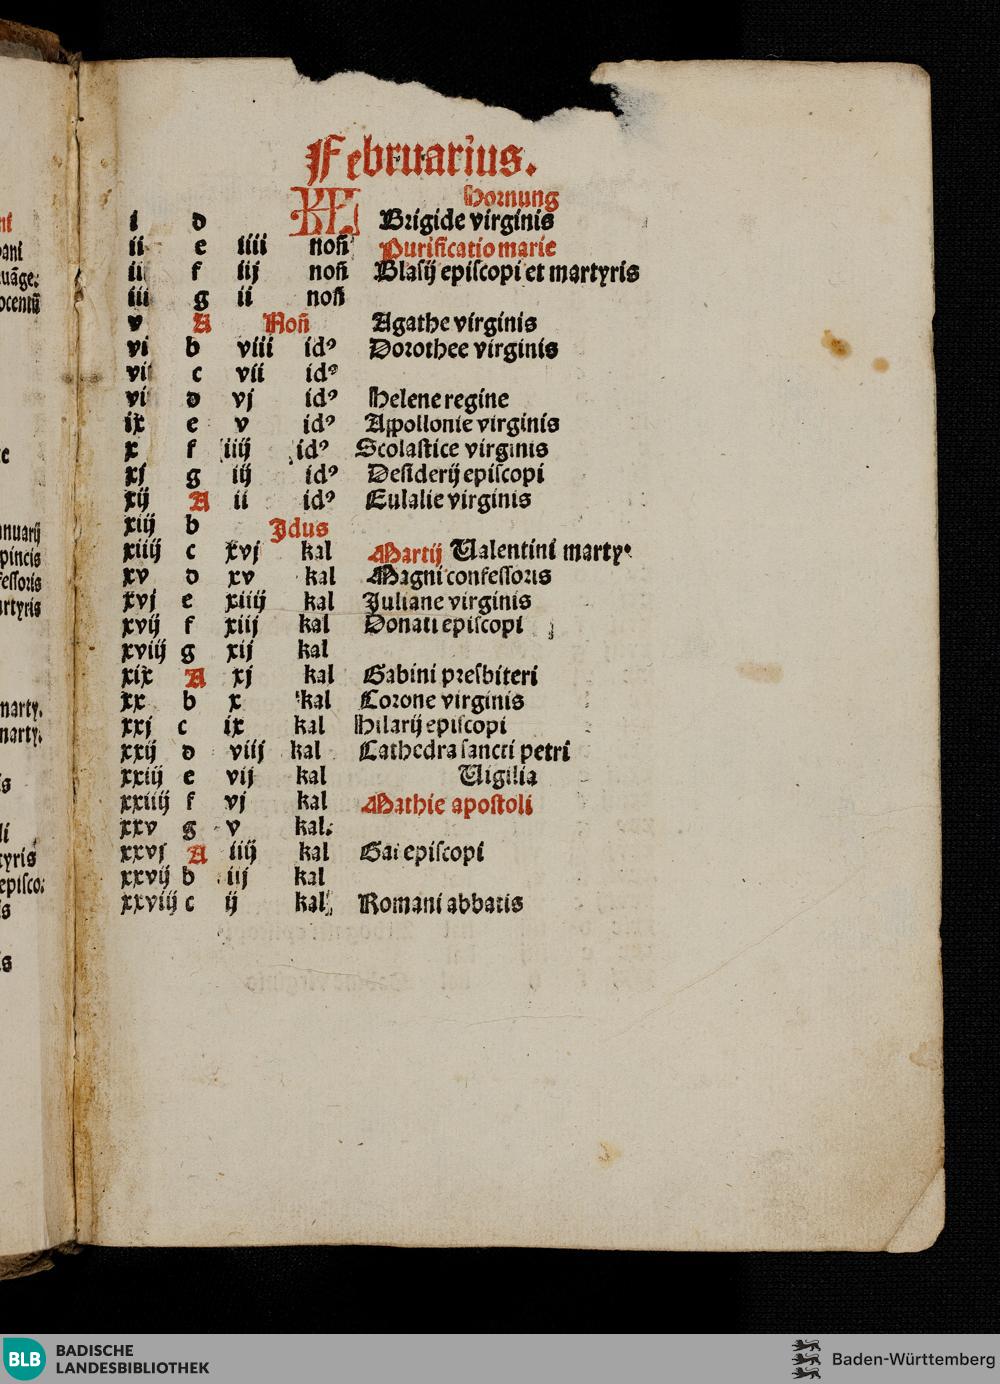 Februarius.
KL Hornung
i d Brigide virginis
ii e iiii noñ Purificatio marie
iii f iij noñ Blasij episcopi et martyris
iiii g ii noñ
v A Noñ Agathe virginis
vi b viii idꝰ Dorothee virginis
vii c vii idꝰ
viii d vj idꝰ Helene regine
ix e v idꝰ Appollonie virginis
x f iiij idꝰ Scolastice virginis
xj g iij idꝰ Desiderij episcopi
xij A ii idꝰ Eulalie virginis
xiij b Jdus
xiiij c xvj kal Martij Valentini marty.
xv d xv kal Magni confessoris
xvj e xiiij kal Juliane virginis
xvij f xiij kal Donati episcopi
xviij g xij kal
xix A xj kal Gabini presbiteri
xx b x kal Corone virginis
xxj c ix kal Hilarij episcopi
xxij d viij kal Cathedra sancti petri
xxiij e vij kal Vigilia
xxiiij f vj kal Mathie apostoli
xxv g v kal.
xxvj A iiij kal Gai episcopi
xxvij b iij kal
xxviij c ij kal Romani abbatis
nuarij
pincis
fessoris
rtyris
marty.
marty.
tyris
episco:
BLB BADISCHE
LANDESBIBLIOTHEK
Baden-Württemberg